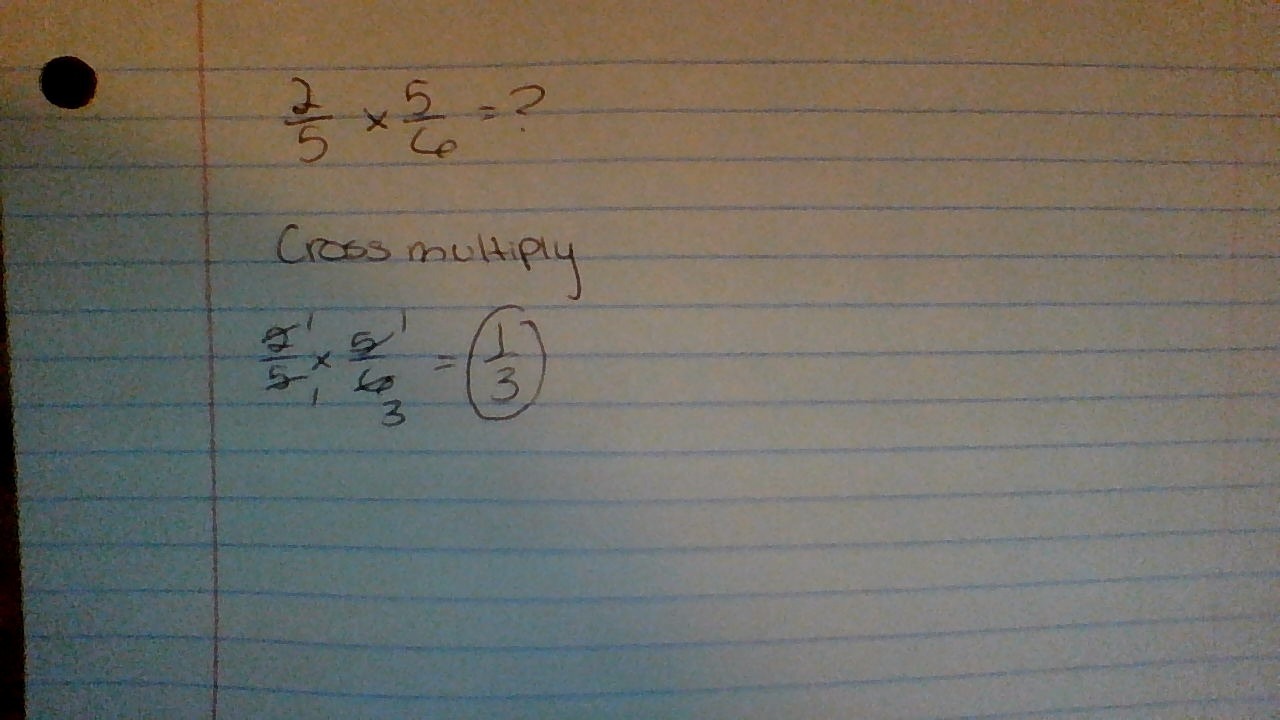 2/5 × 5/6 = ?
Cross multiply
2/5 1 1 × 5/6 1 3 = 1/3